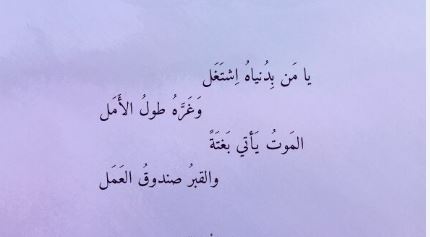 يا مَن بِدُنياهُ اِشتَغَل
وَغَرَّهُ طولُ الأَمَل
المَوتُ يَأتي بَغتَةً
والقبرُ صندوقُ العَمَل